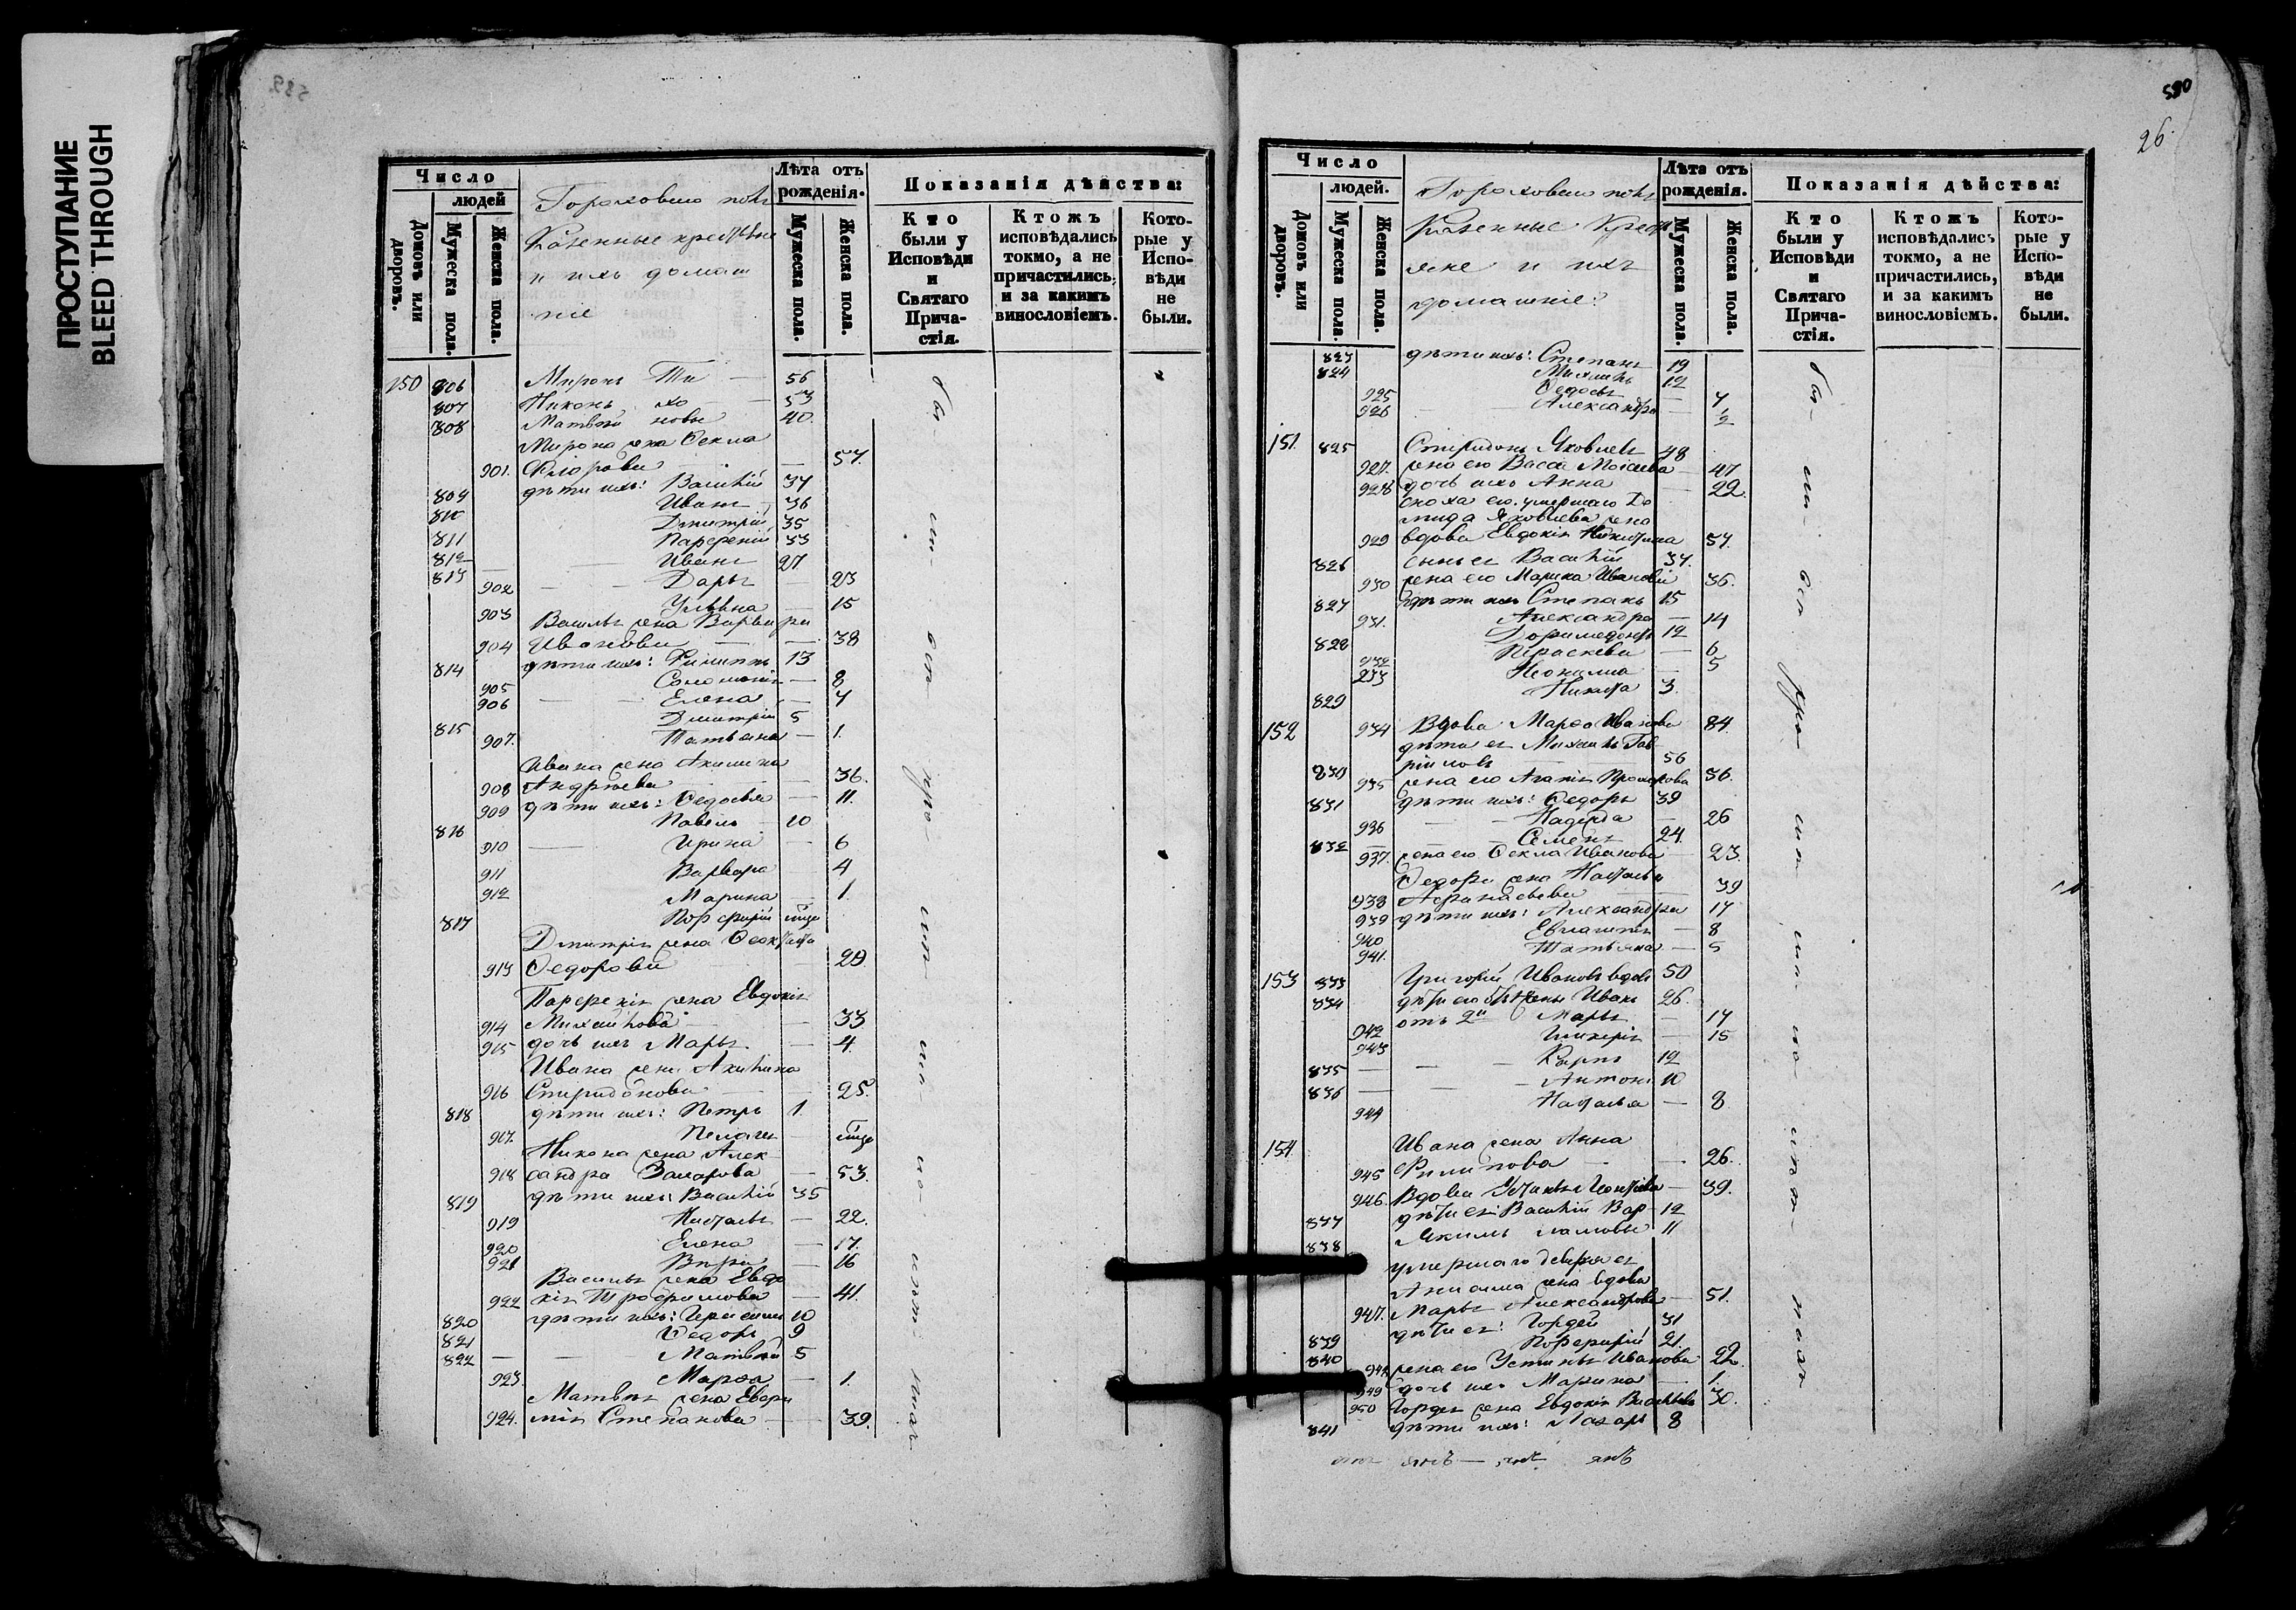 ПРОСТУПАНИЕ
BLEED THROUGH
589.
Число
людей
Домовъ или дворовъ.
Мужеска пола.
Женска пола.
Гороховаго
Казенные крестьяне
и ихъ домаш
ніе
Лѣта отъ рожденія.
Мужеска пола.
Женска пола.
Показанія дѣйства:
Кто были у Исповѣди и Святаго Прича-стія.
Ктожъ исповѣдались токмо, а не причастились, и за какимъ винословіемъ.
Кото-рые у Испо-вѣди не были.
150 806 Миронъ Ти — 56
807 Никонъ хо — 53
808 Матвѣй новы 40.
Мирона жена Ѳекла
901. Флорова — 57.
809 дѣти ихъ: Василій 37
810 Иванъ 36
811 Дмитрій 35
812 Парфеній 33
813 Иванъ 27
902 — Дарья — 23
903 Ульяна — 15
Василья жена Варвара
904 Иванова — 38
814 дѣти ихъ: Филиппъ 13
905 Соломонія — 8
906 — Елена — 7
815 Дмитрій 5
907. Татьяна — 1.
Ивана жена Акилина
908 Андреева — 36.
909 дѣти ихъ: Ѳедосья — 11.
816 Павелъ 10
910 — Ирина — 6
911 Варвара — 4
912 Марина — 1.
817 Порфирій
Дмитрія жена Ѳеоктиста
913 Ѳедорова — 29.
Парфенія жена Евдокія
914 Михайлова — 33
915 дочь ихъ Марья. — 4.
Ивана жена Акилина
916 Спиридонова — 25.
818 дѣти ихъ: Петръ 1
917. Пелагея —
Никона жена Алек
918 сандра Захарова — 53.
819 дѣти ихъ: Василій 35
919 Наталья — 22.
920 Елена — 17.
921 Вѣра — 16
Василья жена Евдо
922 кія Трофимова — 41.
820 дѣти ихъ: Герасимъ 10
821 Ѳедоръ 9
822 — — Матвѣй 5
923 Марѳа — 1.
Матвѣя жена Евфи
924. мія Степанова — 39.
590
26.
Число
людей.
Домовъ или дворовъ.
Мужеска пола.
Женска пола.
Гороховаго
Казенные Крест
яне и ихъ
домашніе:
Лѣта отъ рожденія.
Мужеска пола.
Женска пола.
Показанія дѣйства:
Кто были у Исповѣди и Святаго Прича-стія.
Ктожъ исповѣдались токмо, а не причастились, и за какимъ винословіемъ.
Кото-рые у Испо-вѣди не были.
823 дѣти ихъ: Степанъ 19
824 Михаилъ 12
925 Ѳедосья — 7
926 — Александра — ½
151. 825 Спиридонъ Яковлевъ 48
927. жена его Васса Моісеева — 47
928 дочь ихъ Анна — 22.
сноха его, умершаго Де
мида Яковлева жена
929 вдова Евдокія Никитина 57.
826 сынъ ея Василій 37.
930 жена его Марина Иванова 36.
827 дѣти ихъ Степанъ 15
931. Александра — 14
828 Доримедонтъ 12
932 Параскева — 6
933 Неонилла — 5
829 Никита 3.
152 934 Вдова Марѳа Иванова 84.
дѣти ея Михаилъ Гав
830 риловъ 56
935 жена его Агаѳія Прохорова 56.
831 дѣти ихъ: Ѳедоръ 39
936 — — Надежда — 26
832 — — Семенъ 24.
937. жена его Ѳекла Иванова — 23.
Ѳедора жена Наталья
938 Аѳанасьева — 39
939 дѣти ихъ: Александра 17
940 Евлампія — 8
941. Татьяна — 5
153 833 Григорій Ивановъ вдовъ 50
834 дѣти его 1й жены Иванъ 26.
942 отъ 2й Марья — 17
943 Гликерія — 15
835 — — — Карпъ 12
836 — — — Антонъ 10
944 Наталья — 8
154 Ивана жена Анна
945 Филипова — 26.
946. Вдова Устинья Игнатьева — 39.
837 дѣти ея Василій Вар 12
838 Акимъ ламовы 11
умершаго деверя ея
Анисима жена вдова
947. Марья Александрова — 51.
839 дѣти ея: Гордей 31
840 Порфирій 21.
948 жена его Устинья Иванова 22.
949 дочь ихъ Марина — 1.
950 Гордея жена Евдокія Васильева 30.
841 дѣти ихъ: Лазарь 8